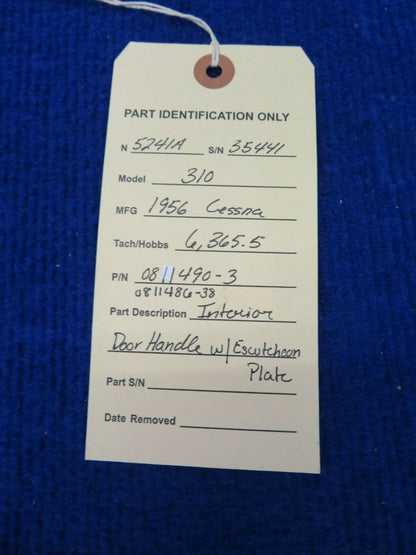 PART IDENTIFICATION ONLY
N 5241A S/N 35441
Model 310
MFG 1956 Cessna
Tach/Hobbs 6,365.5
P/N 0811490-3
0811486-38
Part Description Interior
Door Handle w/ Escutcheon
Plate
Part S/N
Date Removed